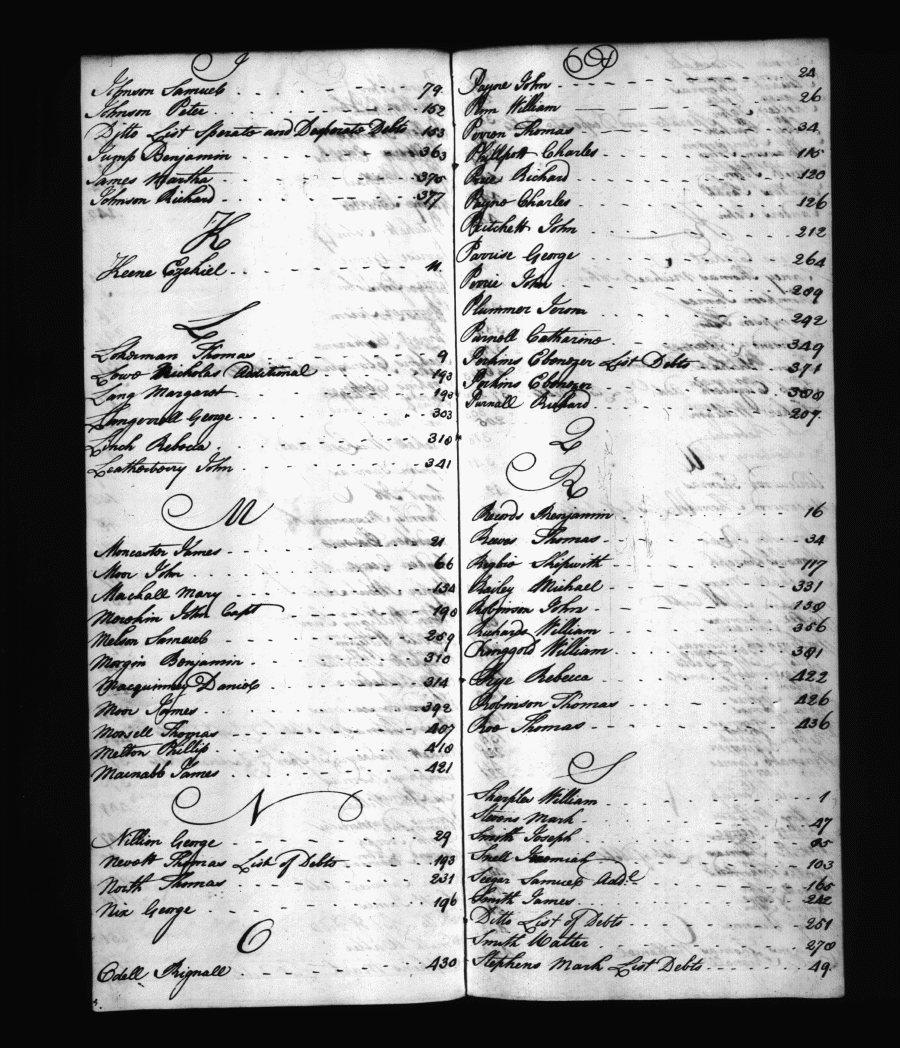 J
Johnson Samuel 79
Johnson Peter 152
Ditto List Sperate and Desperate Debts 153
Jump Benjamin 363
James Martha 375
Johnson Richard 377
K
Keene Ezekiel 11
L
Lokerman Thomas 9
Lowe Nicholas Additional 193
Lang Margaret 198
George 303
Linch Rebecca 310
Leatherberry John 341
M
Moncaster James 21
Moor John 66
Machall Mary 134
John Capt 190
Melson Samuel 259
Morgin Benjamin 310
Macquinney Daniel 314
Moor James 392
Morsell Thomas 407
Melton Phillip 410
Macnabb James 421
N
Nillion George 29
Nevett Thomas List of Debts 193
North Thomas 231
Nix George 196
O
Odell Rignall 430
P
Payne John 24
Pim William 26
Perron Thomas 34
Phillpott Charles 115
Price Richard 120
Payne Charles 126
Pritchett John 212
Parrise George 264
Perrie John 289
Plummer Jerom 292
Parnell Catharine 349
Perkins Ebenezer List Debts 371
Perkins Ebenezer 388
Purnall Richard 207
Q
R
Records Benjamin 16
Reeves Thomas 34
Rigbie Skipwith 117
Railey Michael 331
Robinson John 138
Richards William 356
Ringgold William 381
Rye Rebecca 422
Robinson Thomas 426
Roe Thomas 436
S
Sharples William 1
Stevens Mark 47
Smith Joseph 85
Snell Jeremiah 103
Seegar Samuel Addl 165
Smith James 242
Ditto List of Debts 251
Smith Walter 270
Stephens Mark List Debts 49